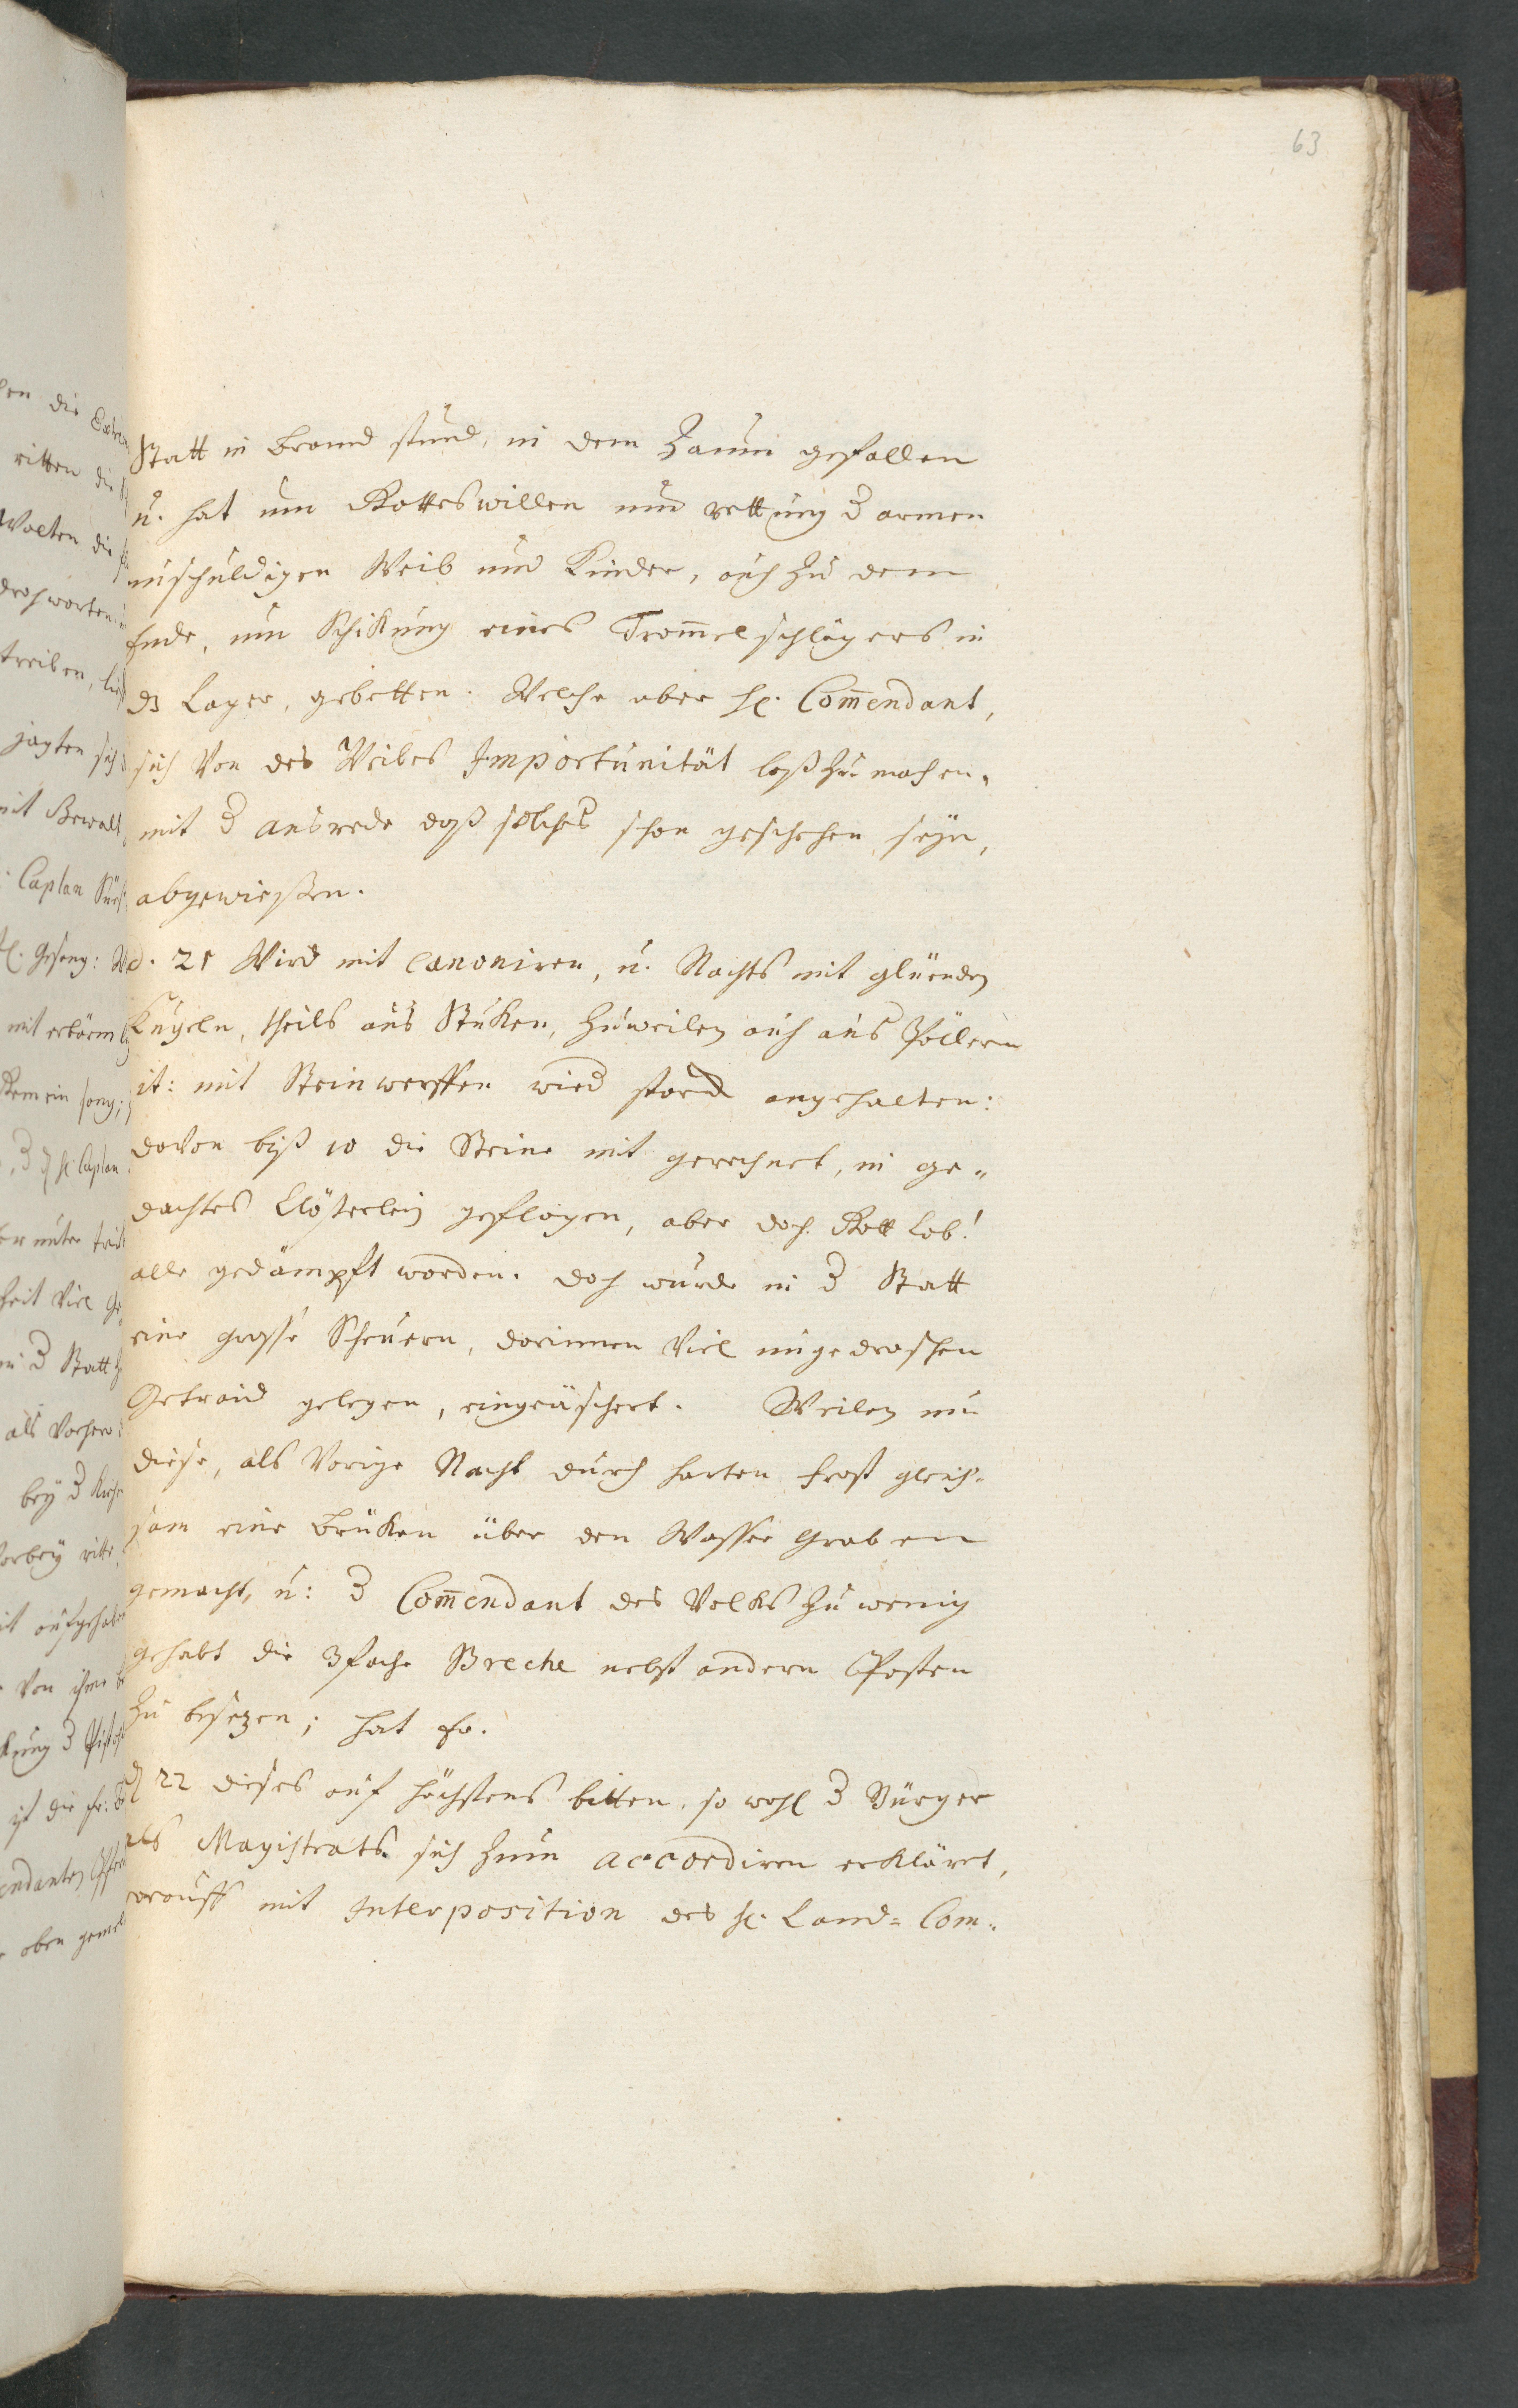 63
Statt in Brand stund, in dem Zaum gefallen
u. hat um Gotteswillen und rettung d armen
unschuldigen Weib und Kinder, auch zu dem
Ende, um Schikung eines Trom̅elschlägers in
dz Lager, gebetten. Welche aber H. Com̅endant,
sich Von des Weibes Importunität loß zu machen,
mit d ausrede daß solches schon geschehen seyn,
abgewießen.
d. 21 Wird mit canoniren, u. Nachts mit glüenden
Kugeln, theils aus Stuken, zuweilen auch aus Pöllern
it: mit Steinwerffen wird starck angehalten:
daVon biß 10 die Steine mit gerechnet, in ge„
dachtes Clösterlein geflogen, aber doch Gott Lob!
alle gedämpft worden. doch wurde in d Statt
eine grosse Scheuern, darinnen Viel ungedroschen
Getraid gelegen, eingeäschert. Weilen nun
diese, als Vorige Nacht durch harten frost gleich„
sam eine Brüken über den Wasser Graben
gemacht, u: d Com̅endant des Volks zu wenig
gehabt die 3fache Breche nebst andern Posten
zu besezen; hat Er.
d 22 dieses auf höchstens bitten, so wohl d Bürger
als Magistrats sich zum accordiren erkläret,
worauff mit Interposition des H. Land= Com„